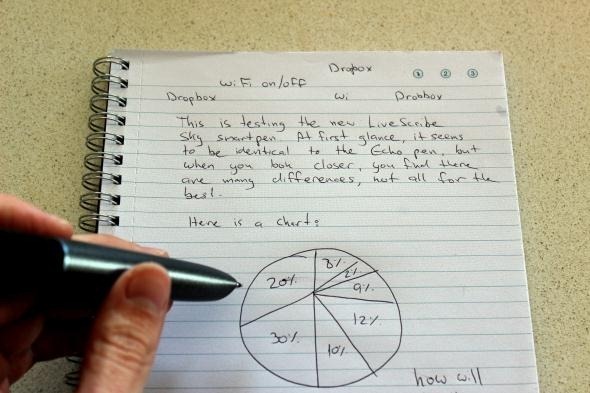 Dropbox
1 2 3
WiFi on/off
Dropbox Wi Drobbox
This is testing the new LiveScribe
Sky smartpen. At first glance, it seems
to be identical to the Echo pen, but
when you look closer, you find there
are many differences, not all for the
best.
Here is a chart:
8%
2%
20%
9%
12%
30%
10%
how will